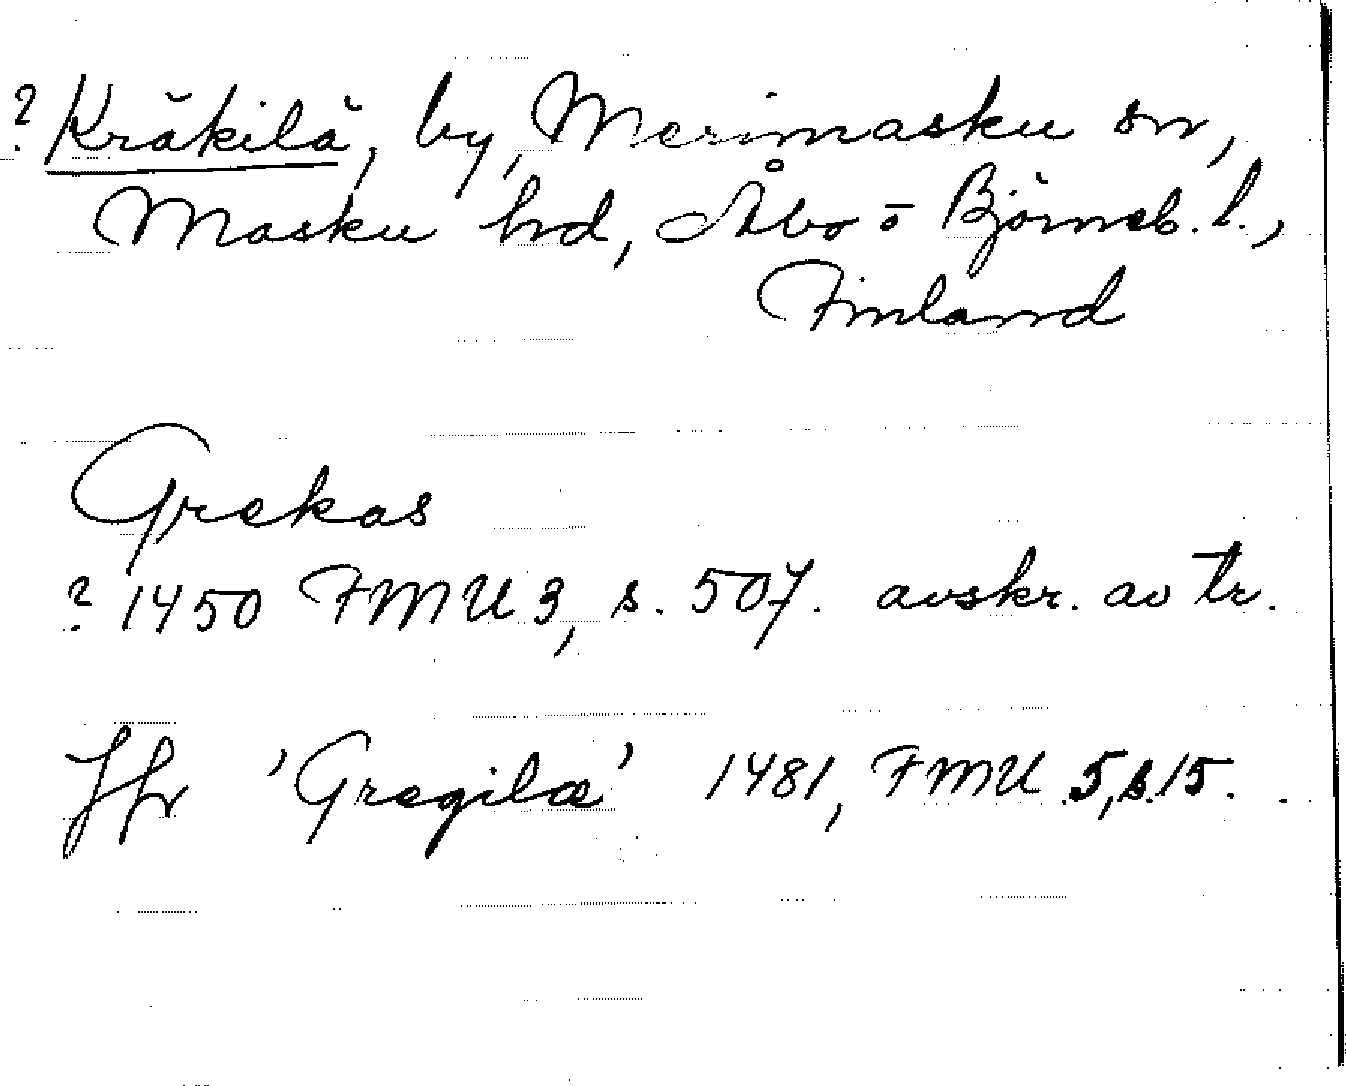 ? Kräkilä, by, Merimasku sn,
Masku hd, Åbo o Björneb. l.,
Finland
Grekas
? 1450 FMU 3, s. 507. avskr. av tr.
Jfr 'Gregilæ' 1481, FMU 5, s. 15.